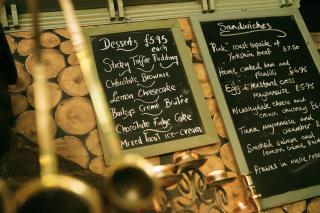 Desserts £5.95
each
Sticky Toffee Pudding
Chocolate Brownie
Lemon Cheesecake
Baileys Creme Brulee
Chocolate Fudge Cake
Mixed local ice-cream
Sandwiches
roast topside of
Yorkshire beef £7.50
Home cooked ham and
Egg & Mustard cress
Mayonnaise £5.95
cheese and
chutney
Tuna, mayonnaise and
cucumber
Smoked salmon and
lemon creme
Prawns in marie rose